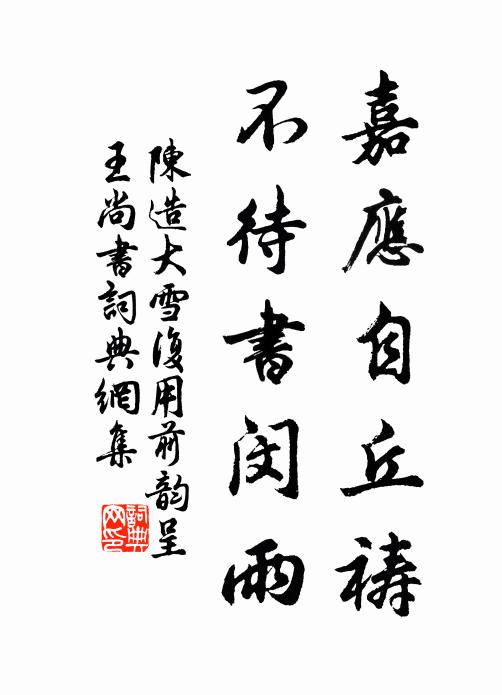 嘉應自丘禱
不待書閔雨
陳造大雪復用前韵呈
王尚書詞典網集
詞典网印